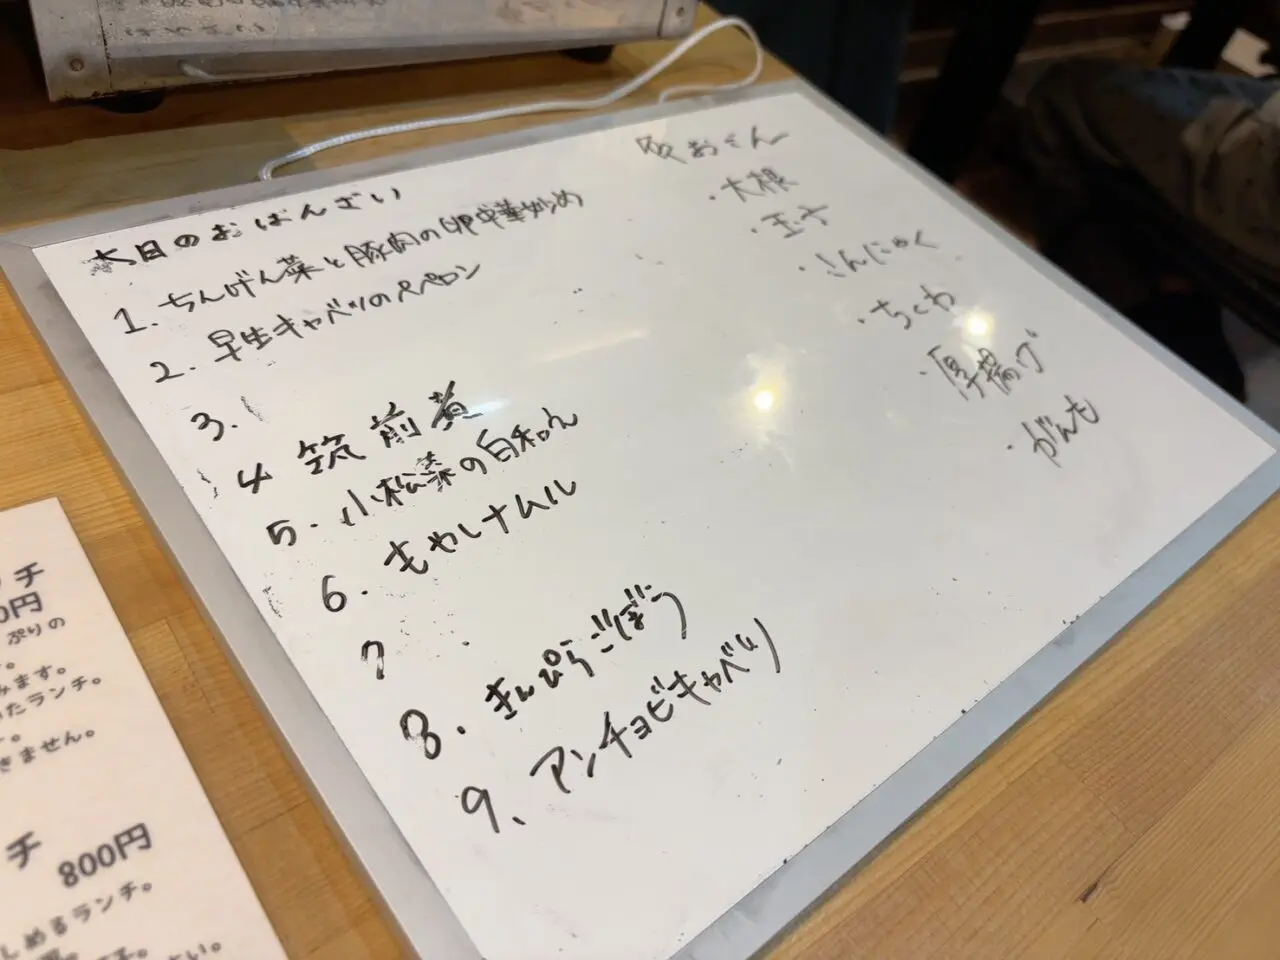 本日のおばんざい
1. ちんげん菜と豚肉の卵中華炒め
2. 早生キャベツのペペロン
3.
4 筑前煮
5. 小松菜の白和え
6. もやしナムル
7 .
8. きんぴらごぼう
9、アンチョビキャベツ
おでん
・大根
・玉子
・こんにゃく
・ちくわ
・厚揚げ
・がんも
チ
0円
ぷりの
。
みます。
たランチ。
。
きません。
チ
800円
しめるランチ。
さい。